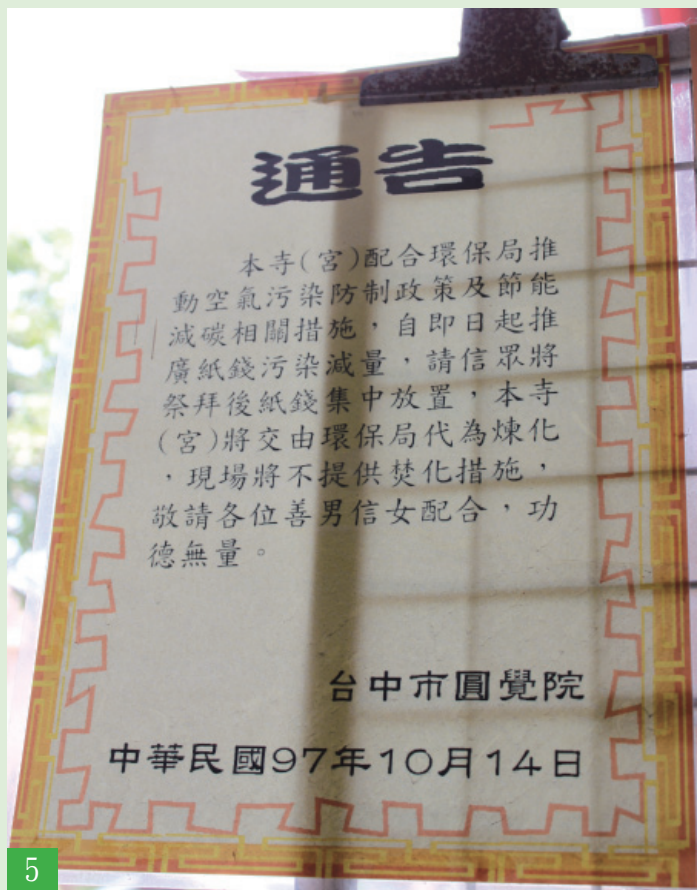 通告
本寺(宮)配合環保局推
動空氣污染防制政策及節能
減碳相關措施，自即日起推
廣紙錢污染減量，請信眾將
祭拜後紙錢集中放置，本寺
(宮)將交由環保局代為煉化
，現場將不提供焚化措施，
敬請各位善男信女配合，功
德無量。
台中市圓覺院
中華民國97年10月14日
5